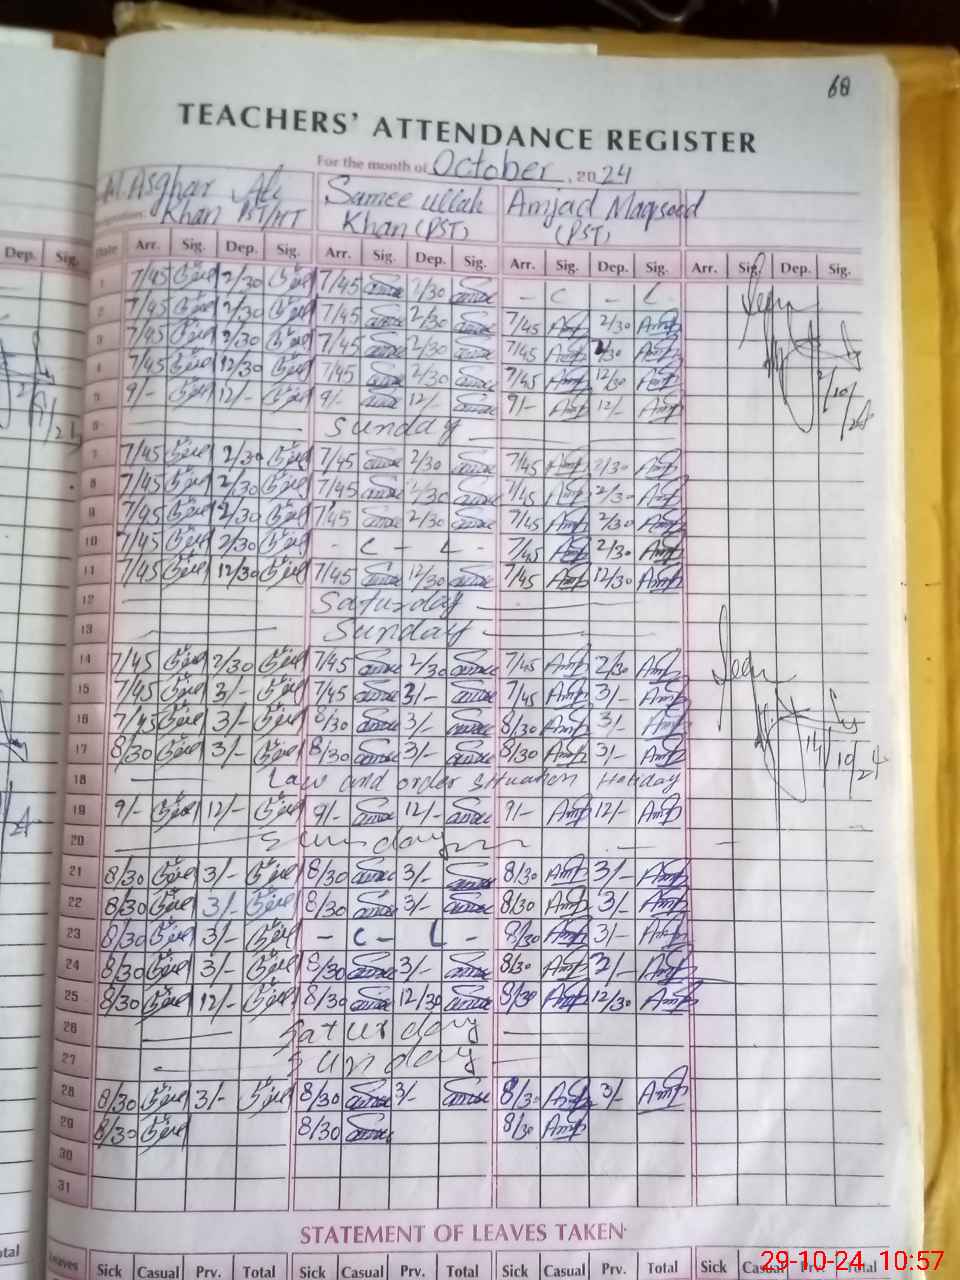 68
TEACHERS' ATTENDANCE REGISTER
For the month of October, 2024
M. Asghar Ali Khan PST/HT Samee ullah Khan (PST) Amjad Maqsood (PST)
Dep. Sig. Date Arr. Sig. Dep. Sig. Arr. Sig. Dep. Sig. Arr. Sig. Dep. Sig. Arr. Sig. Dep. Sig.
1 7/45 2/30 7/45 2/30 - C - L
2 7/45 2/30 7/45 2/30 7/45 Amj 2/30 Amj
3 7/45 2/30 7/45 2/30 7/45 Amj 2/30 Amj
4 7/45 12/30 7/45 2/30 7/45 Amj 12/30 Amj
5 9/- 12/- 9/- 12/- 9/- Amj 12/- Amj
6 Sunday
7 7/45 2/30 7/45 2/30 7/45 Amj 2/30 Amj
8 7/45 2/30 7/45 2/30 7/45 Amj 2/30 Amj
9 7/45 2/30 7/45 2/30 7/45 Amj 2/30 Amj
10 7/45 2/30 - C - L - 7/45 Amj 2/30 Amj
11 7/45 12/30 7/45 12/30 7/45 Amj 12/30 Amj
12 Saturday
13 Sunday
14 7/45 2/30 7/45 2/30 7/45 Amj 2/30 Amj
15 7/45 3/- 7/45 3/- 7/45 Amj 3/- Amj
16 7/45 3/- 8/30 3/- 8/30 Amj 3/- Amj
17 8/30 3/- 8/30 3/- 8/30 Amj 3/- Amj
18 Law and order situation Holiday
19 9/- 12/- 9/- 12/- 9/- Amj 12/- Amj
20 Sunday
21 8/30 3/- 8/30 3/- 8/30 Amj 3/- Amj
22 8/30 3/- 8/30 3/- 8/30 Amj 3/- Amj
23 8/30 3/- - C - L - 8/30 Amj 3/- Amj
24 8/30 3/- 8/30 3/- 8/30 Amj 3/- Amj
25 8/30 12/- 8/30 12/30 8/30 Amj 12/30 Amj
26 Saturday
27 Sunday
28 8/30 3/- 8/30 3/- 8/30 Amj 3/- Amj
29 8/30 8/30 8/30 Amj
30
31
2/10/24
14/10/24
STATEMENT OF LEAVES TAKEN
Total Leaves Sick Casual Prv. Total Sick Casual Prv. Total Sick Casual Prv. Total Sick Casual Prv. Total
29-10-24 10:57